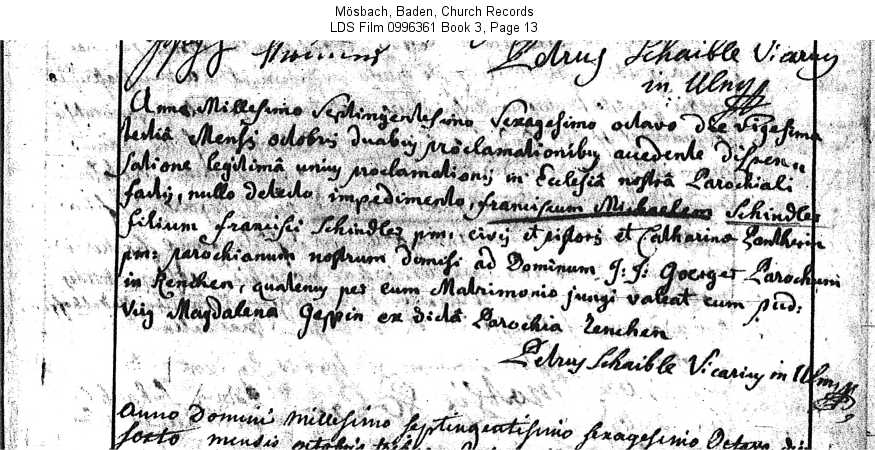 Mösbach, Baden, Church Records
LDS Film 0996361 Book 3, Page 13
Petrus Schaible Vicarius
in Ulm
Anno Millesimo Septingentesimo Sexagesimo octavo die vigesima
tertiâ Mensis octobris duabus proclamationibus accedente dispen„
satione legitimâ unius proclamationis in Ecclesiâ nostrâ Parochiali
factis, nullo detecto impedimento, franciscum Michaelem Schindler
filium francisci Schindler pm: civis et pistoris et Catharina
pm: parochianum nostrum dimisi ad Dominum J: J: Goerger Parochum
in Renchen, quatenus per eum Matrimonio jungi valeat cum pud:
virg Magdalena ex dictâ Parochia Renchen
Petrus Schaible Vicarius in Ulm
Anno Domini millesimo septingentisimo sexagesimo Octavo di
sexto mensis octobris